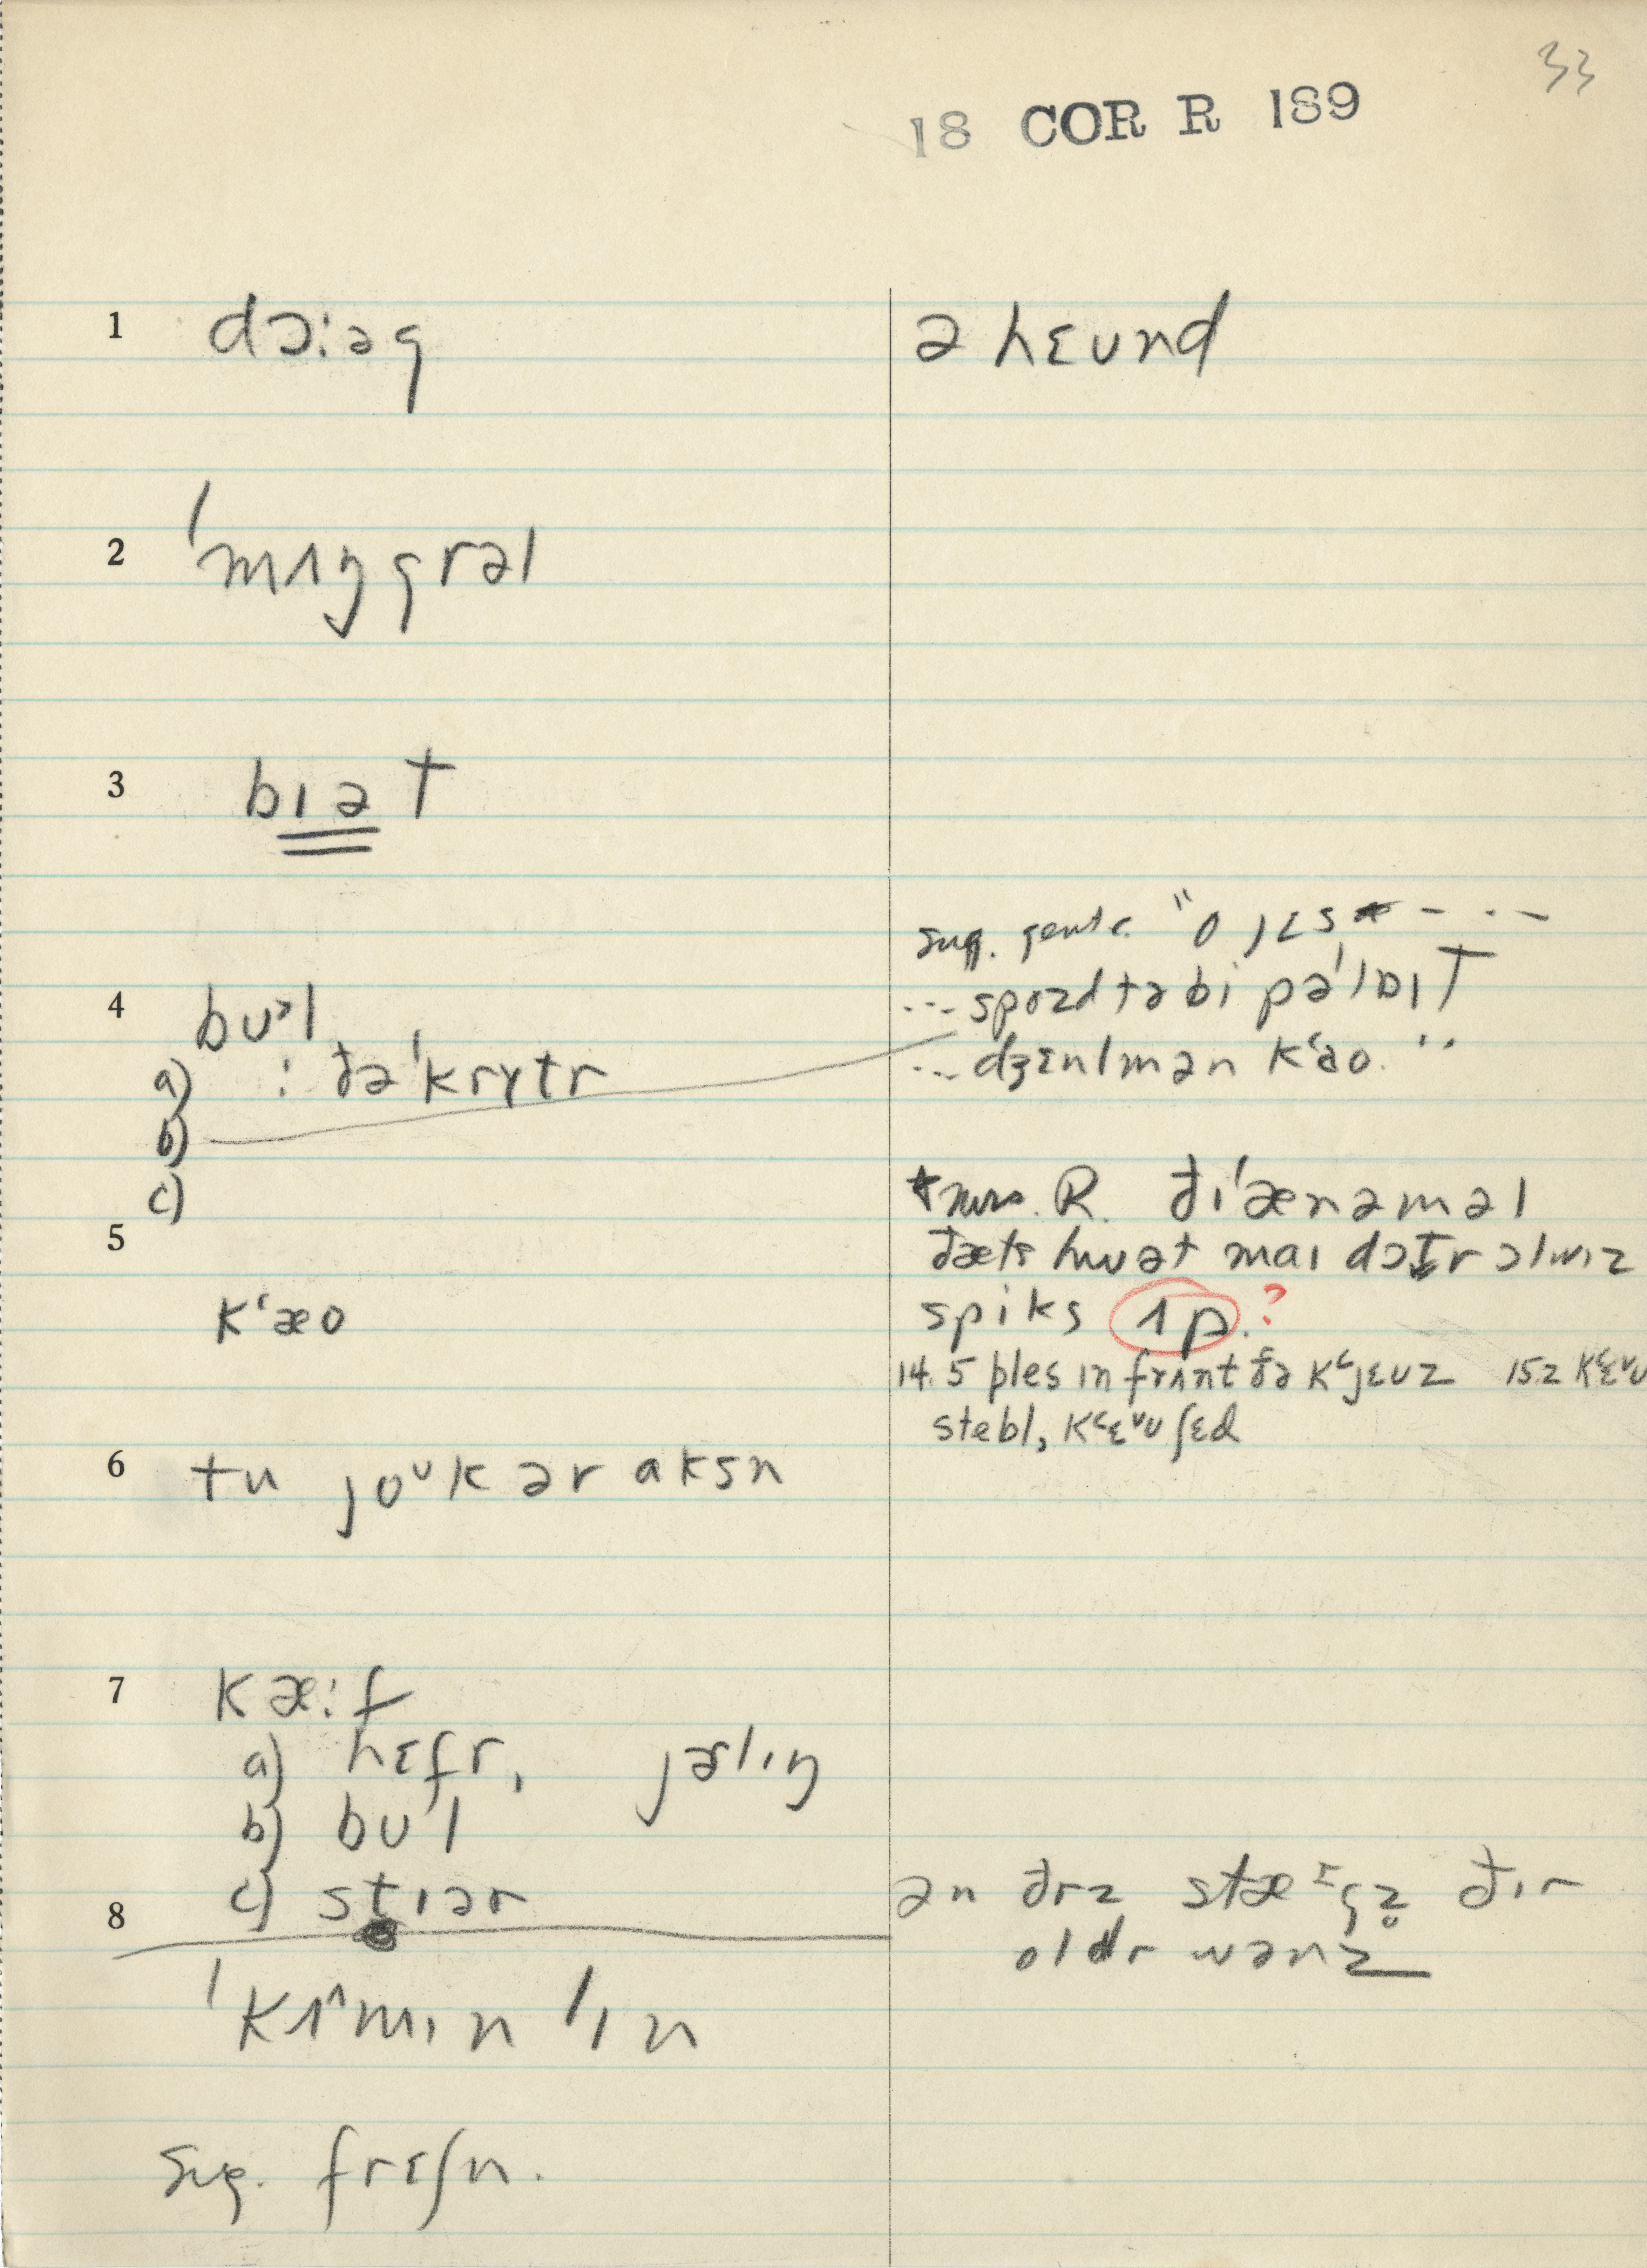 33
18 COR R 189
1 dɔ:əg
ə hɛund
2 ˈmʌŋgrəl
3 bɪət
4 bʊᵊl
a) : ðəˈkrɤtr
b)
c)
sug. gentc. "o jɛs* - - -
--- spozd tə bi pəˈlaɪt
--- dʒɛnlmən kʻao. "
5
kʻæo
*mrs. R. ðɪˈænəməl
ðæts hwət maɪ dɔtr ɔlwɪz
spiks ʌp.?
14.5 ples ɪn frʌnt ðə kʻjɛuz 15.2 kʻɛᵛu
stebl, kʻɛᵛu ʃɛd
6 tu joᵘk ər aksn
7 kæ:f
a) hɛfr, jərlɪŋ
b) bʊl
c) stɪər
8
ən ðrz stæᵋgz̥ ðɪr
oldr wənz
ˈkʌ^mɪn ˈɪn
sug. frɛʃn.